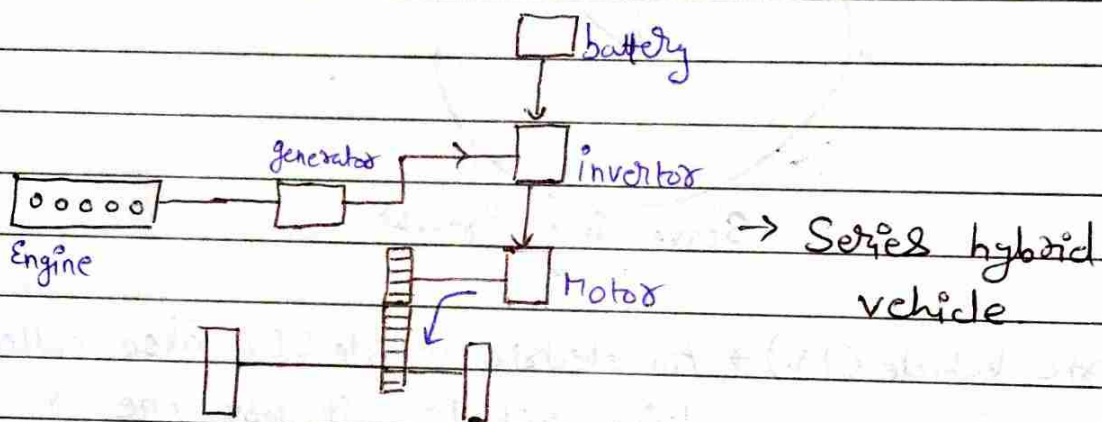 battery
generator
invertor
Engine
Motor
→ Series hybrid
vehicle